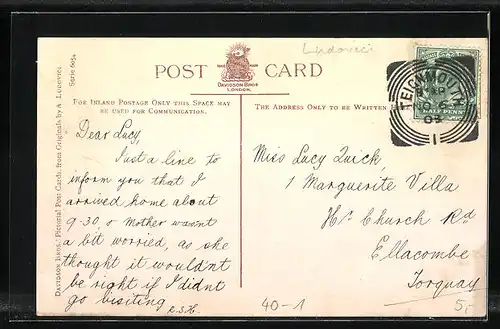 Ludovici
POST CARD
DAVIDSON BROS
LONDON.
FOR INLAND POSTAGE ONLY THIS SPACE MAY
BE USED FOR COMMUNICATION.
THE ADDRESS ONLY TO BE WRITTEN
DAVIDSON BROS.' Pictorial Post Cards, from Originals by A. Ludovici
Serie 6054
Dear Lucy,
Just a line to
inform you that I
arrived home about
9-30, & Mother wasn't
a bit worried, as she
thought it wouldn't
be right if I didnt
go visiting
E.S.H.
Miss Lucy Quick,
1 Marguerite Villa
Hr. Church Rd
Ellacombe
Torquay
TEIGNMOUTH
1
HALFPENNY
40-1
5,-